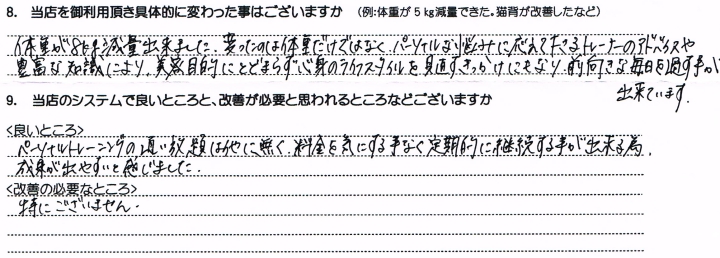 8. 当店を御利用頂き具体的に変わった事はございますか (例:体重が5kg減量できた。猫背が改善したなど)
体重が8kg減量出来ました。変ったのは体重だけではなく、パーソナルなり悩みに応えて下さるトレーナーのアドバイスや
豊富な知識により、美容目的にとどまらず心身のライフスタイルを見直すきっかけにもなり、前向きな毎日を過す事が
出来ています。
9. 当店のシステムで良いところと、改善が必要と思われるところなどございますか
<良いところ>
パーソナルトレーニングの通い放題は他に無く、料金を気にする事なく定期的に継続する事が出来る為、
成果が出やすいと感じました。
<改善の必要なところ>
特にございません。